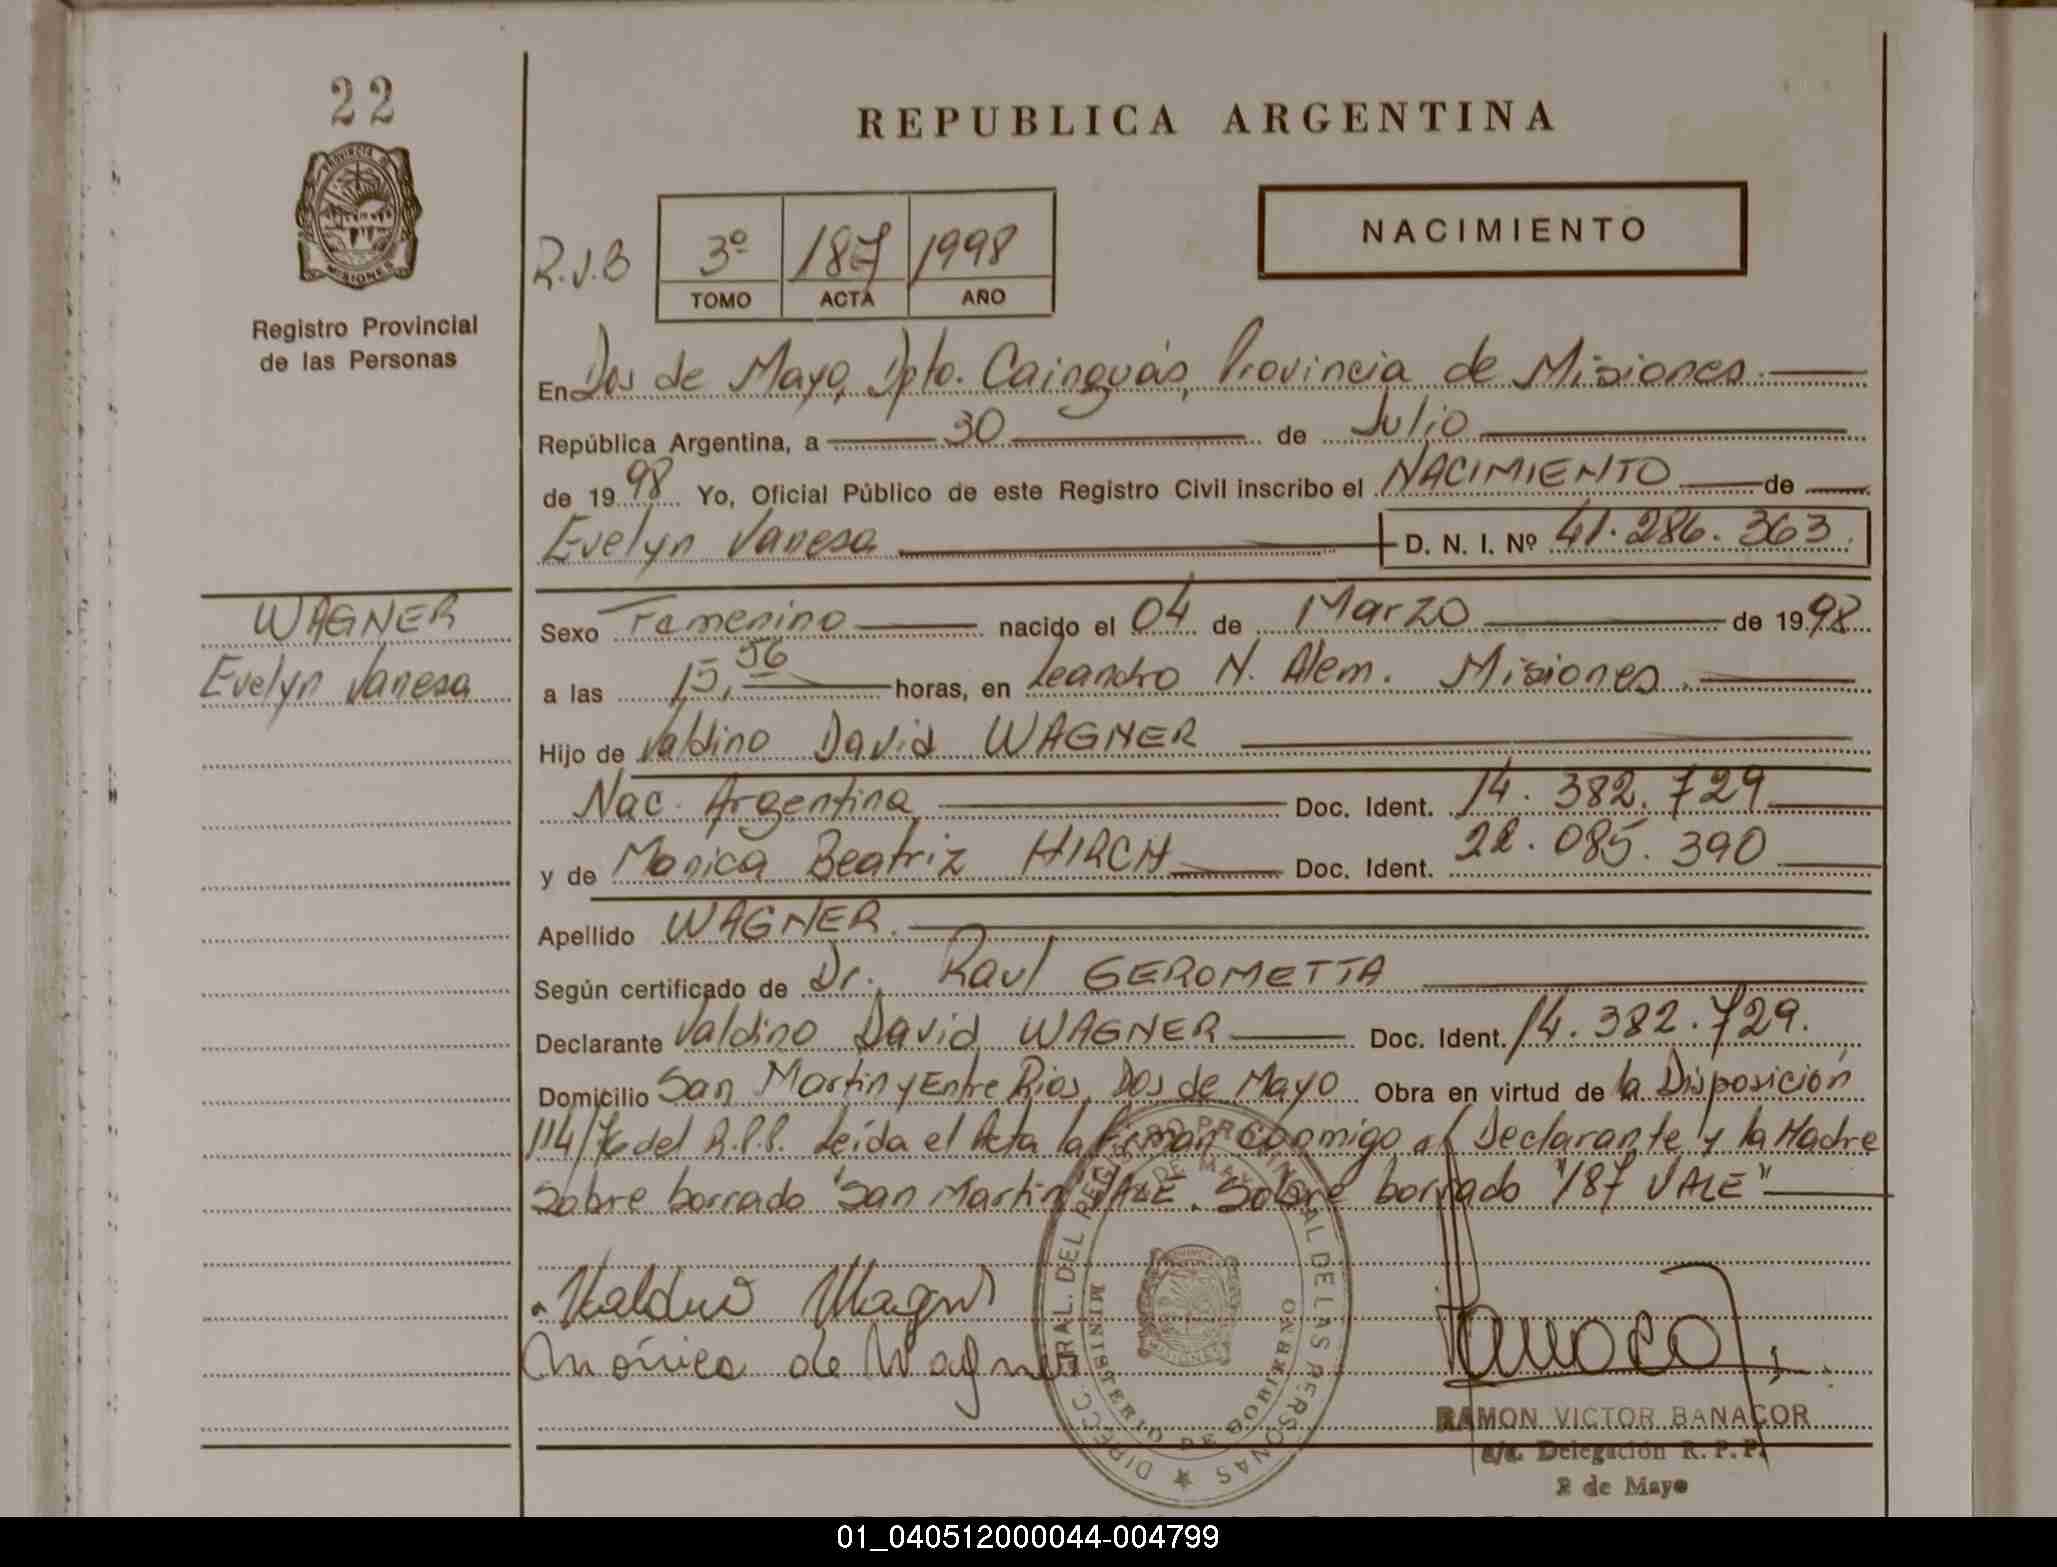 22
PROVINCIA DE
MISIONES
Registro Provincial
de las Personas
REPUBLICA ARGENTINA
R.J.B
3º 187 1998
TOMO ACTA AÑO
NACIMIENTO
En Dos de Mayo, Dpto. Cainguás, Provincia de Misiones.
República Argentina, a 30 de Julio
de 1998 Yo, Oficial Público de este Registro Civil inscribo el NACIMIENTO de
Evelyn Vanesa D. N. I. Nº 41.286.363.
WAGNER
Evelyn Vanesa
Sexo Femenino nacido el 04 de Marzo de 1998
a las 15,56 horas, en Leandro N. Alem. Misiones.
Hijo de Valdino David WAGNER
Nac. Argentina Doc. Ident. 14.382.729
y de Monica Beatriz HIRCH Doc. Ident. 22.085.390
Apellido WAGNER.
Según certificado de Dr. Raul GEROMETTA
Declarante Valdino David WAGNER Doc. Ident. 14.382.729.
Domicilio San Martin y Entre Rios, Dos de Mayo Obra en virtud de la Disposición
114/76 del R.P.P. Leída el Acta la firman conmigo el Declarante y la Madre
Sobre borrado "San Martin" VALE. Sobre borrado "187 VALE"
Valdino Wagner
Mónica de Wagner
DIRECC. GRAL. DEL REGISTRO PROVINCIAL DE LAS PERSONAS
2 DE MAYO
MINISTERIO DE GOBIERNO
PROVINCIA
MISIONES
RAMON VICTOR BANACOR
a/c. Delegación R. P. P.
2 de Mayo
01_040512000044-004799